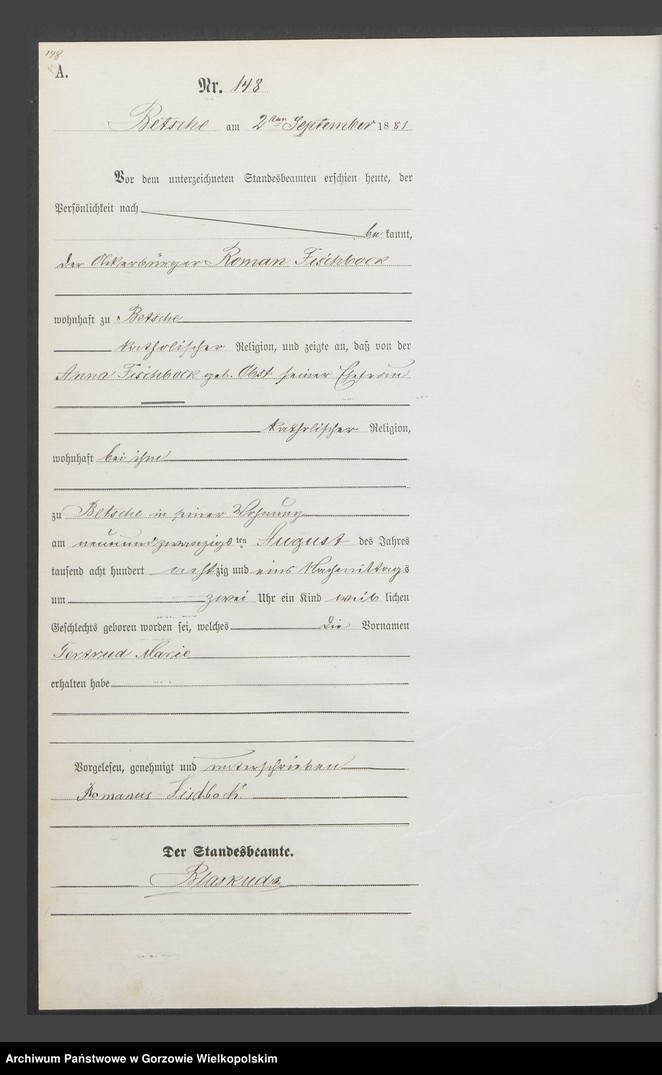 148
A.
Nr. 148
Betsche am 2ten September 1881
Vor dem unterzeichneten Standesbeamten erschien heute, der
Persönlichkeit nach
bekannt,
der Ackerbürger Roman Fischbock
wohnhaft zu Betsche
katholischer Religion, und zeigte an, daß von der
Anna Fischbock geb. Obst seiner Ehefrau
katholischer Religion,
wohnhaft bei ihm
zu Betsche in seiner Wohnung
am neunundzwanzigsten August des Jahres
tausend acht hundert achtzig und eins Nachmittags
um zwei Uhr ein Kind weiblichen
Geschlechts geboren worden sei, welches die Vornamen
Gertrud Marie
erhalten habe
Vorgelesen, genehmigt und unterschrieben
Romanus Fischbock
Der Standesbeamte.
Archiwum Państwowe w Gorzowie Wielkopolskim